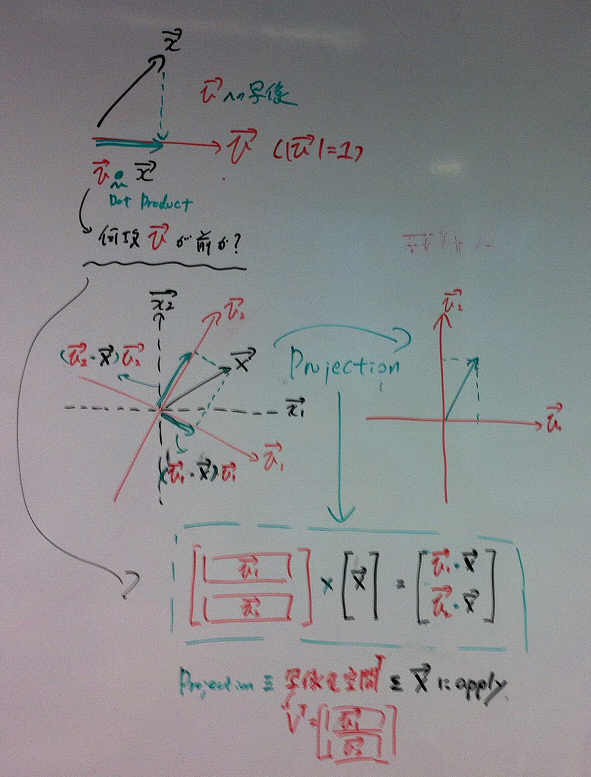 x⃗
v⃗ への写像
v⃗ (|v⃗|=1)
v⃗ · x⃗
Dot Product
何故 v⃗ が前か?
x⃗₂
v⃗₂
(v⃗₂·x⃗)v⃗₂
x⃗
x⃗₁
(v⃗₁·x⃗)v⃗₁
v⃗₁
Projection
v⃗₂
v⃗₁
[v⃗₁ v⃗₂] × [x⃗] = [v⃗₁·x⃗ v⃗₂·x⃗]
Projection ≡ 写像先空間ᵀ を x⃗ に apply
Vᵀ = [v⃗₁ v⃗₂]